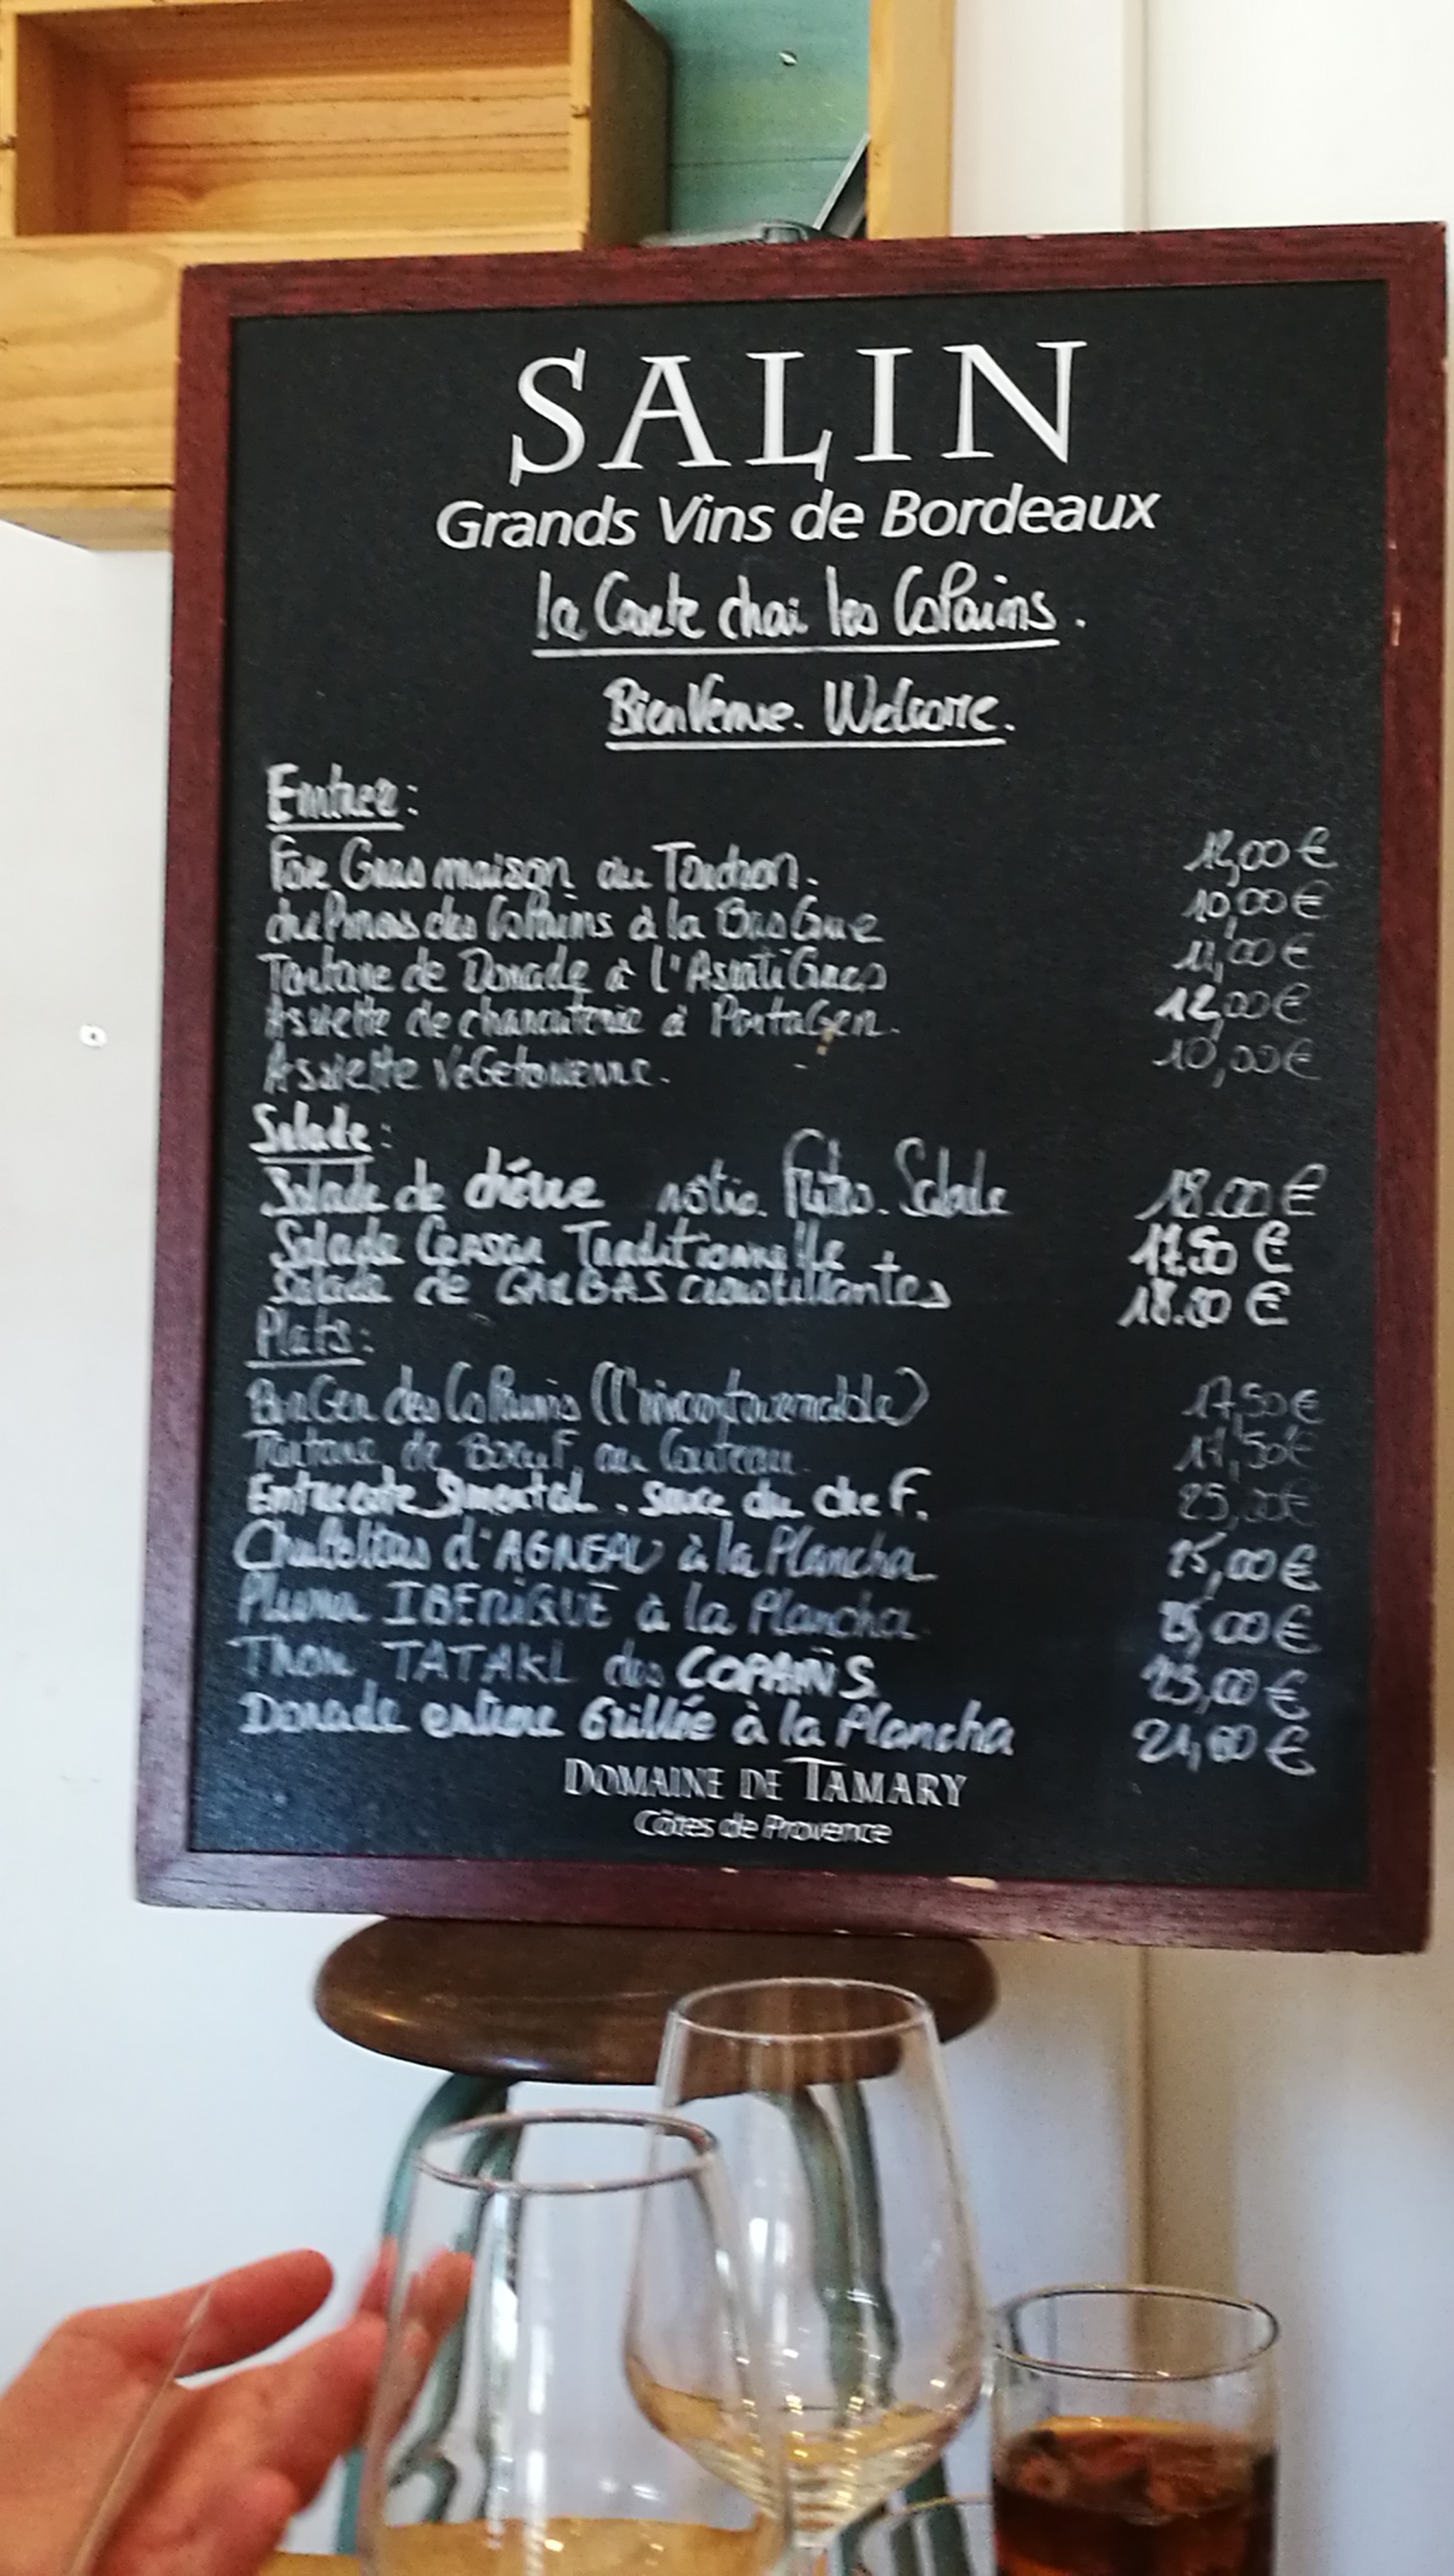 SALIN
Grands Vins de Bordeaux
la Carte chai les CoPains.
BienVenue. Welcome.
Entrer:
Foie Gras maison au Torchon. 12,00 €
des CoPains à la BasGue 10,00 €
Tartare de Dorade à l'AsiatiGues 11,00 €
Assiette de charcuterie à PartaGer. 12,00 €
Assiette VéGetarienne. 10,00 €
Salade:
Salade de chévre rôtie. Frites. Salade 18.00 €
Salade Ceasar Traditionnelle 17.50 €
Salade de GAMBAS croustillantes 18.00 €
Plats:
BurGer des CoPains (l'incontournable) 17,50 €
Tartare de Boeuf au Couteau 17,50 €
Entrecote Simental. sauce du cheF. 25,00 €
d'AGNEAU à la Plancha 25,00 €
Pluma IBERIQUE à la Plancha. 25,00 €
Thon TATAKI des COPAINS 23,00 €
Dorade entiere Grillée à la Plancha 21,00 €
DOMAINE DE TAMARY
Côtes de Provence